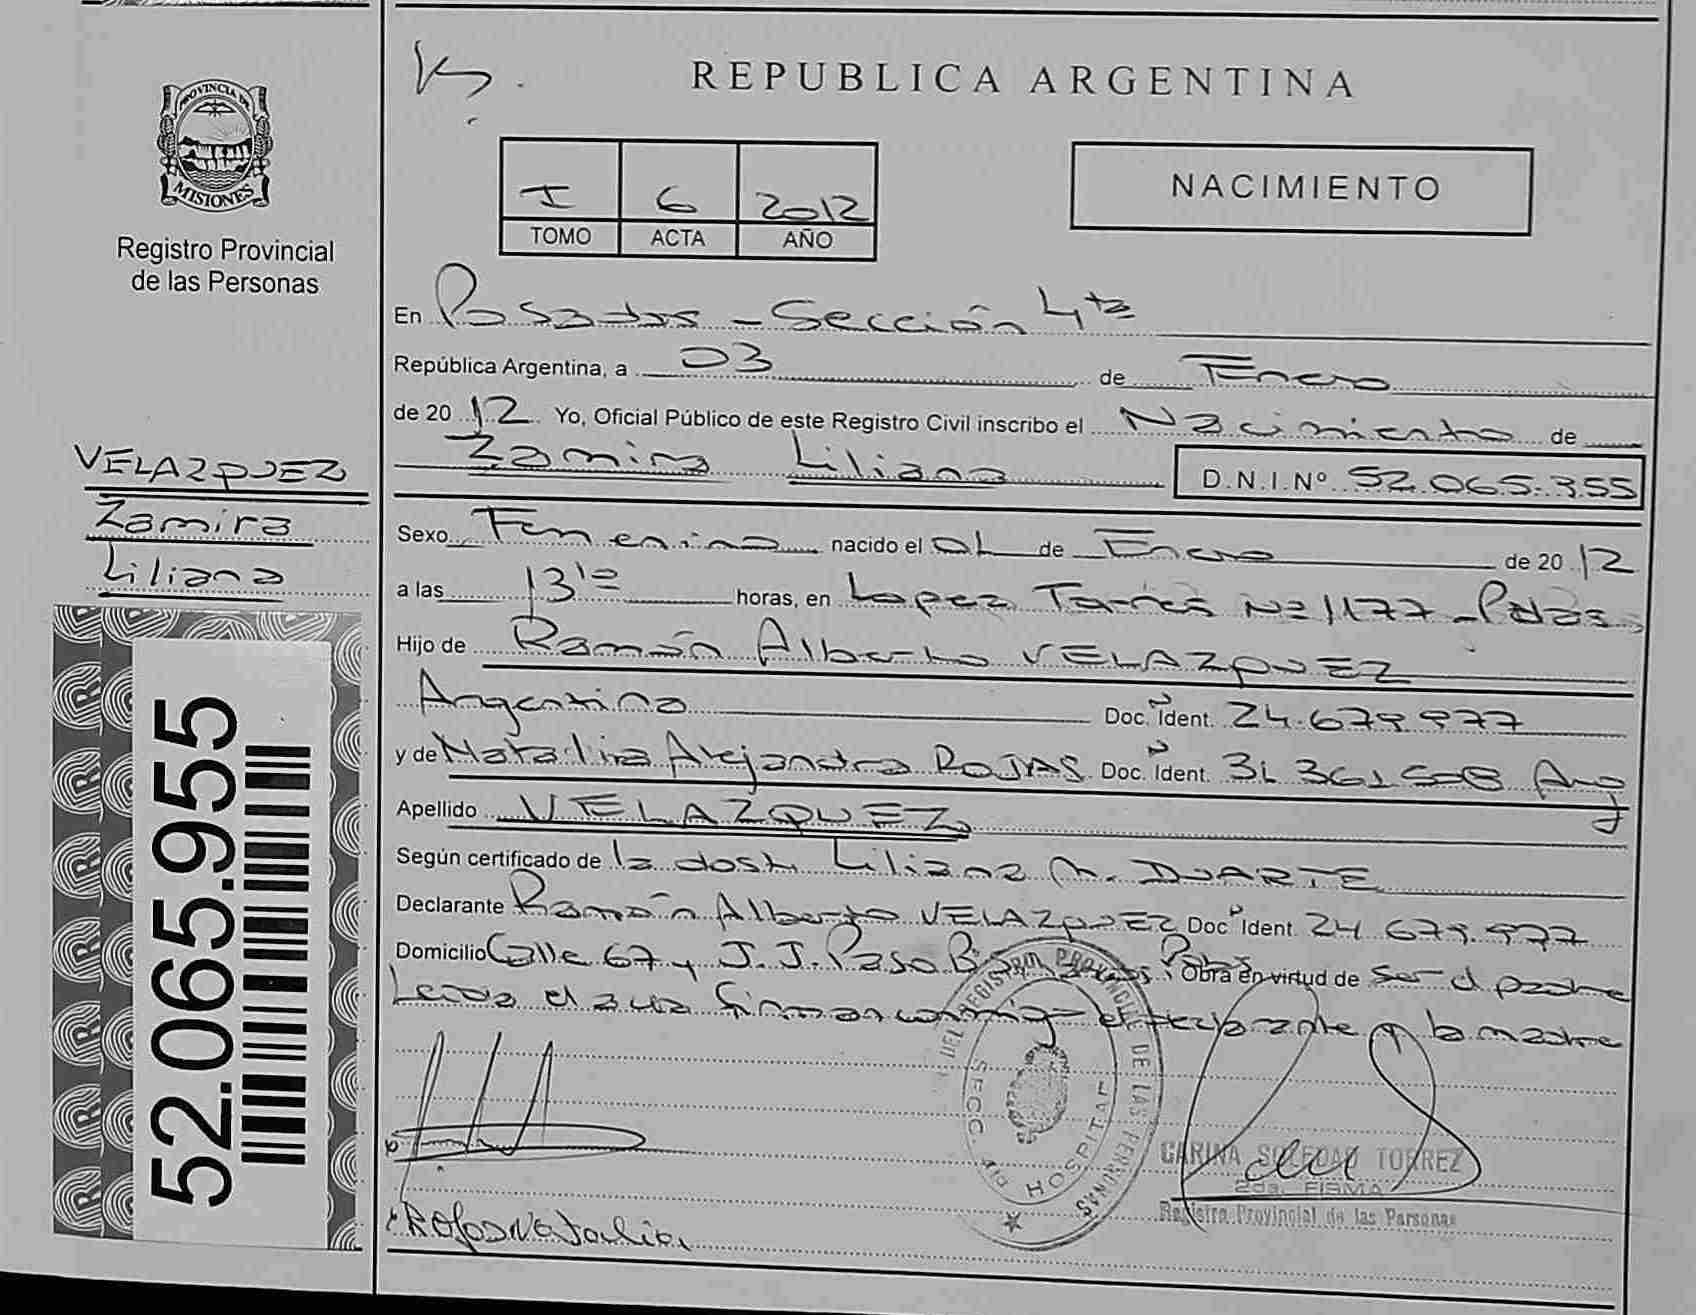 REPUBLICA ARGENTINA
PROVINCIA DE
MISIONES
Registro Provincial
de las Personas
I 6 2012
TOMO ACTA AÑO
NACIMIENTO
En Posadas - Sección 4ta
República Argentina, a 03 de Enero
de 2012 Yo, Oficial Público de este Registro Civil inscribo el Nacimiento de
Zamira Liliana D.N.I.Nº 52.065.955
VELAZQUEZ
Zamira
Liliana
Sexo Femenino nacido el 01 de Enero de 2012
a las 13 horas, en Lopez Torres Nº 1177 - Pdas
Hijo de Ramón Alberto VELAZQUEZ
Argentino Doc. Ident. 24.679.977
y de Natalia Alejandra ROJAS Doc. Ident. 31.361.508 Arg
Apellido VELAZQUEZ
Según certificado de la Liliana M. DUARTE
Declarante Ramón Alberto VELAZQUEZ Doc Ident. 24.679.977
Domicilio Calle 67 y J.J. Paso Obra en virtud de ser el padre
Leida el acta firman conmigo el declarante y la madre
52.065.955
DEL REGISTRO PROVINCIAL DE LAS PERSONAS
SECC. 4ta HOSPITAL
CARINA SOLEDAD TORREZ
2da. FIRMA
Registro Provincial de las Personas
Rojas Natalia